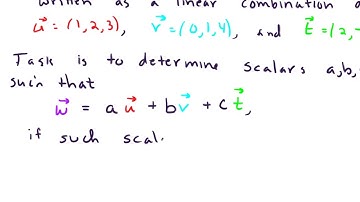 written as a linear combination o
u⃗ = (1,2,3) v⃗ = (0,1,4), and t⃗ = (2,-
Task is to determine scalars a,b,
such that
w⃗ = a u⃗ + b v⃗ + c t⃗,
if such scal